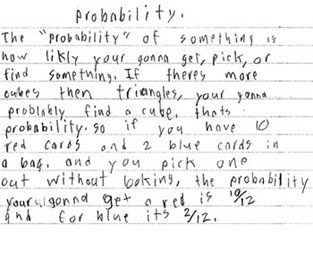 probability.
The "probability" of something is
how likly your gonna get, pick, or
find something. If theres more
cubes then triangles, your gonna
problably find a cube. thats
probability. so if you have 10
red cards and 2 blue cards in
a bag. and you pick one
out without looking, the probability
your gonna get a red is 10/12
and for blue its 2/12.